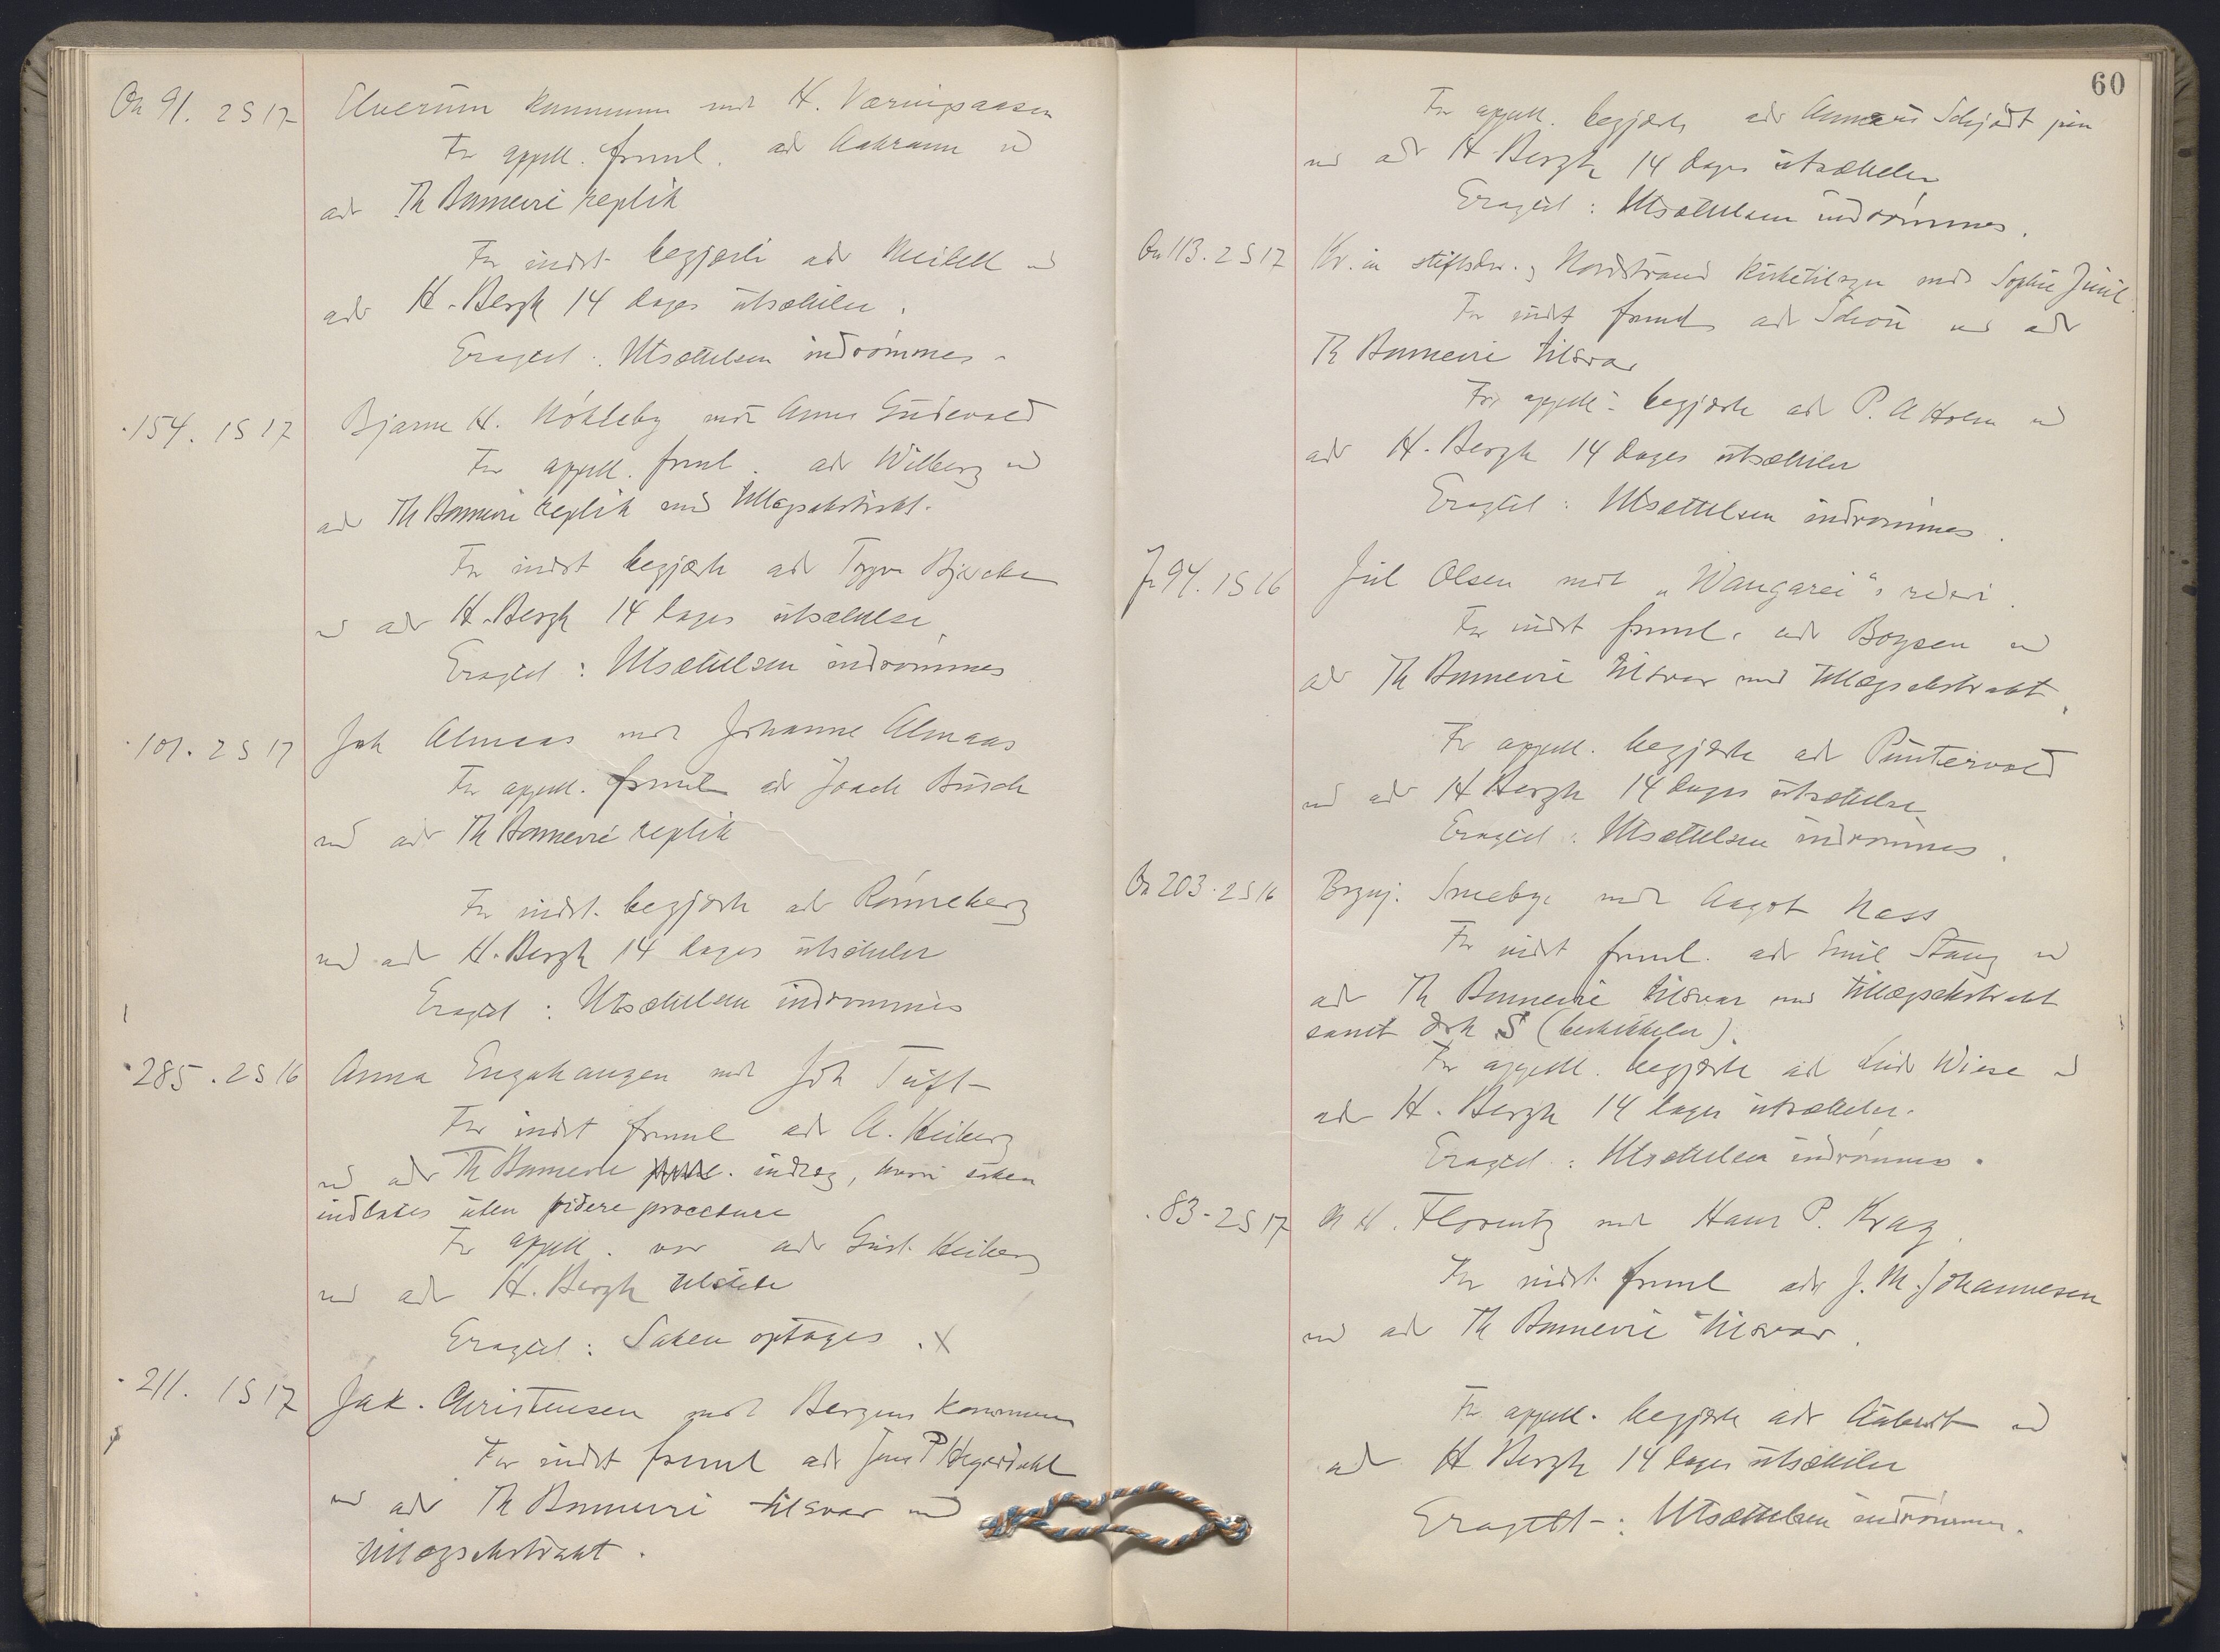 On 91. 2 S 17 Elverum kommune mot H.Væringsaasen
For appell. freml. adv Aakrann ved
adv Th Bonnevie replik
For indst. begjærte adv Meidell ved
adv H. Bergh 14 dages utsættelse.
Eragtet: Utsættelsen indrømmes.
154. 1 S 17 Bjarne H. Nökleby mot Anna Gudevold
For appell. freml. adv Wilberg ved
adv Th Bonnevie replik med tillægsekstrakt.
For indst begjærte adv Trygve Bjercke
ved adv H. Bergh 14 dages utsættelse
Eragtet: Utsættelsen indrømmes
101. 2 S 17 Joh Almaas mot Johanne Almaas
For appell. freml adv Joach Busch
ved adv Th Bonnevie replik
For indst. begjærte adv Rönneberg
ved adv H. Bergh 14 dages utsættelse
Eragtet: Utsættelsen indrømmes
285. 2 S 16 Anna Engehaugen mot Joh Tuft
For indst freml adv A. Heiberg
ved adv Th Bonnevie indlæg, hvori saken
indlates uten videre procedure
For appell. var adv Gust. Heiberg
ved adv H. Bergh tilstede
Eragtet: Saken optages. X
211. 1 S 17 Jak. Christensen mot Bergens kommune
For indst freml adv Jens P Hegerdahl
ved adv Th Bonnevie tilsvar med
tillægsekstrakt.
60
For appell. begjærte adv Annæus Schjødt jun
ved adv H. Bergh 14 dages utsættelse
Eragtet: Utsættelsen indrømmes.
On 113. 2 S 17 Kr.ia stiftsdir. og Nordstrand kirketilsyn mot Sophie Juul.
For indst freml adv Schou ved adv
Th Bonnevie tilsvar
For appell. begjærte adv P. A Holm ved
adv H. Bergh 14 dages utsættelse
Eragtet: Utsættelsen indrømmes.
Fr 94. 1 S 16 Jul Olsen mot "Wangarei"s rederi.
For indst freml. adv Boysen ved
adv Th Bonnevie tilsvar med tillægsekstrakt.
For appell. begjærte adv Puntervold
ved adv H Bergh 14 dages utsættelse
Eragtet: Utsættelsen indrømmes.
On 203. 2 S 16 Brynj. Smebye mot Aagot Næss
For indst freml. adv Emil Stang ved
adv Th Bonnevie tilsvar med tillægsekstrakt
samt dok S (beskikkelse).
For appell. begjærte adv Wiese ved
adv H. Bergh 14 dages utsættelse.
Eragtet: Utsættelsen indrømmes.
83. 2 S 17 A H. Florentz mot Hans P. Krag.
For indst. freml adv J. M. Johannesen
ved adv Th Bonnevie tilsvar.
For appell. begjærte adv Aubert ved
adv H Bergh 14 dages utsættelse
Eragtet: Utsættelsen indrømmes.